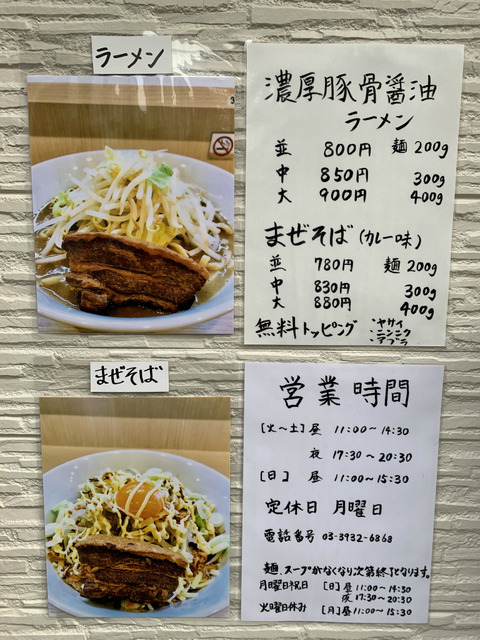 ラーメン
濃厚豚骨醤油
ラーメン
並 800円 麺 200g
中 850円 300g
大 900円 400g
まぜそば (カレー味)
並 780円 麺 200g
中 830円 300g
大 880円 400g
無料トッピング ・ヤサイ
・ニンニク
・アブラ
まぜそば
営業時間
[火〜土] 昼 11:00〜14:30
夜 17:30〜20:30
[日] 昼 11:00〜15:30
定休日 月曜日
電話番号 03-3932-6868
麺、スープがなくなり次第終了となります。
月曜日祝日 [日]昼11:00〜14:30
夜17:30〜20:30
火曜日休み [月]昼11:00〜15:30